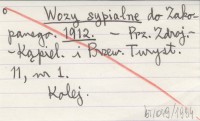 Wozy sypialne do Zako-
panego. 1912. - Prz. Zdroj.-
- Kąpiel. i Przew. Turyst.
11, nr 1.
Kolej.